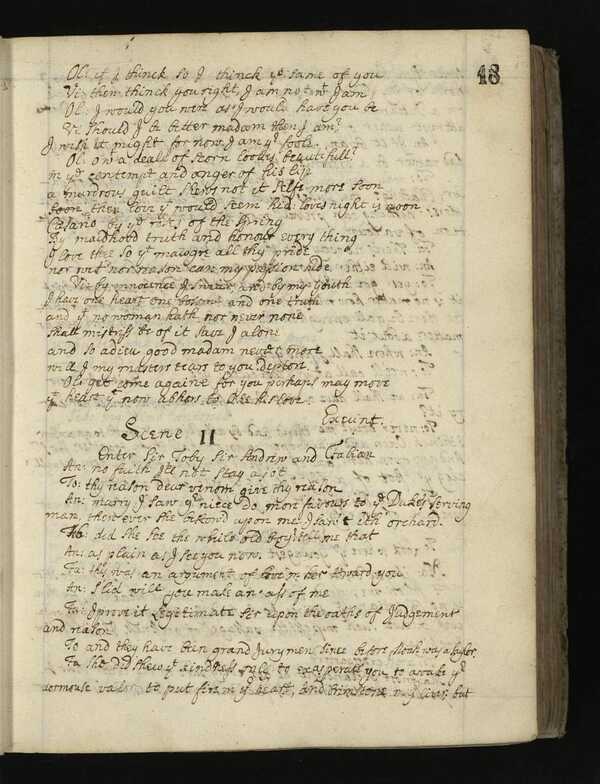 48
Ol: if I thinck so I thinck yᵉ same of you
Vi: then thinck you right, I am not wᵗ I am
Ol: I would you were as I would have you be
Vi should I be better madam then I am?
I wish it might for now I am yʳ foole.
Ol: o wᵗ a deale of scorn looks beautifull
in yᵉ contempt and anger of his lip
a murdrous guilt shews not it selfe more soon
then love yᵗ would seem hid: loves night is noon
Cesario by yᵉ roses of the spring
By maidhood truth and honour every thing
I love thee so yᵗ maugre all thy pride
nor wit nor reason can my passion hide
Vi: by innocence I swear and by my youth
I have one heart one bosome and one truth
and yᵗ no woman hath nor never none
shall mistress be of it save I alone
and so adieu good madam never more
will I my masters tears to you deplore
Ol: yet come againe for you perhaps may move
yᵗ heart wᶜʰ now abhors to like his love
Exeunt.
Scene II
Enter Sir Toby Sir Andrew and Fabian
An: no faith Ile not stay a jot
To: thy reason dear venom give thy reason
An: marry I saw yʳ niece do more favours to yᵉ Dukes serving
man, then ever she bestowd upon me I saw't ith' orchard.
To: did she see the while old boy tell me that
An: as plain as I see you now.
Fa: this was an argument of love in her toward you
An: Slid will you make an ass of me
Fa: I prove it legitimate sir upon the oaths of Judgement
and reason
To and they have bin grand Jury men since before Noah was a saylor
Fa She did shew yᵉ kindness only to exasperate you to awake yʳ
dormouse valor to put fire in yʳ heart, and brimstone in yʳ liver, but